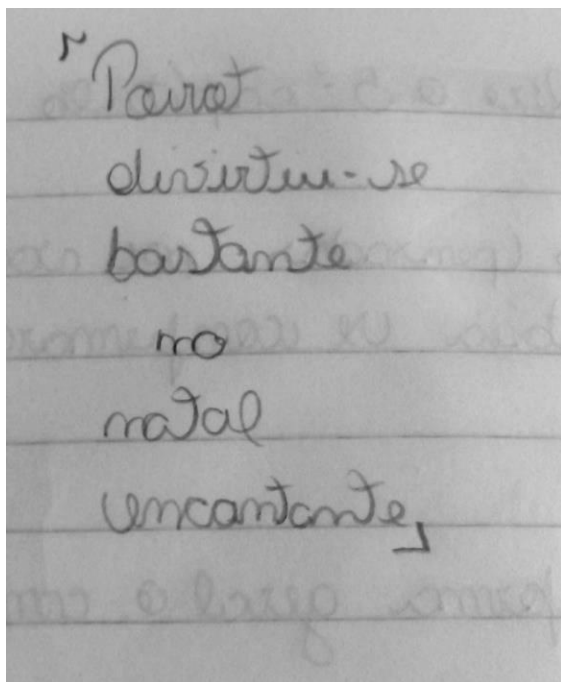 「Poirot
divertiu-se
bastante
no
natal
encantante」